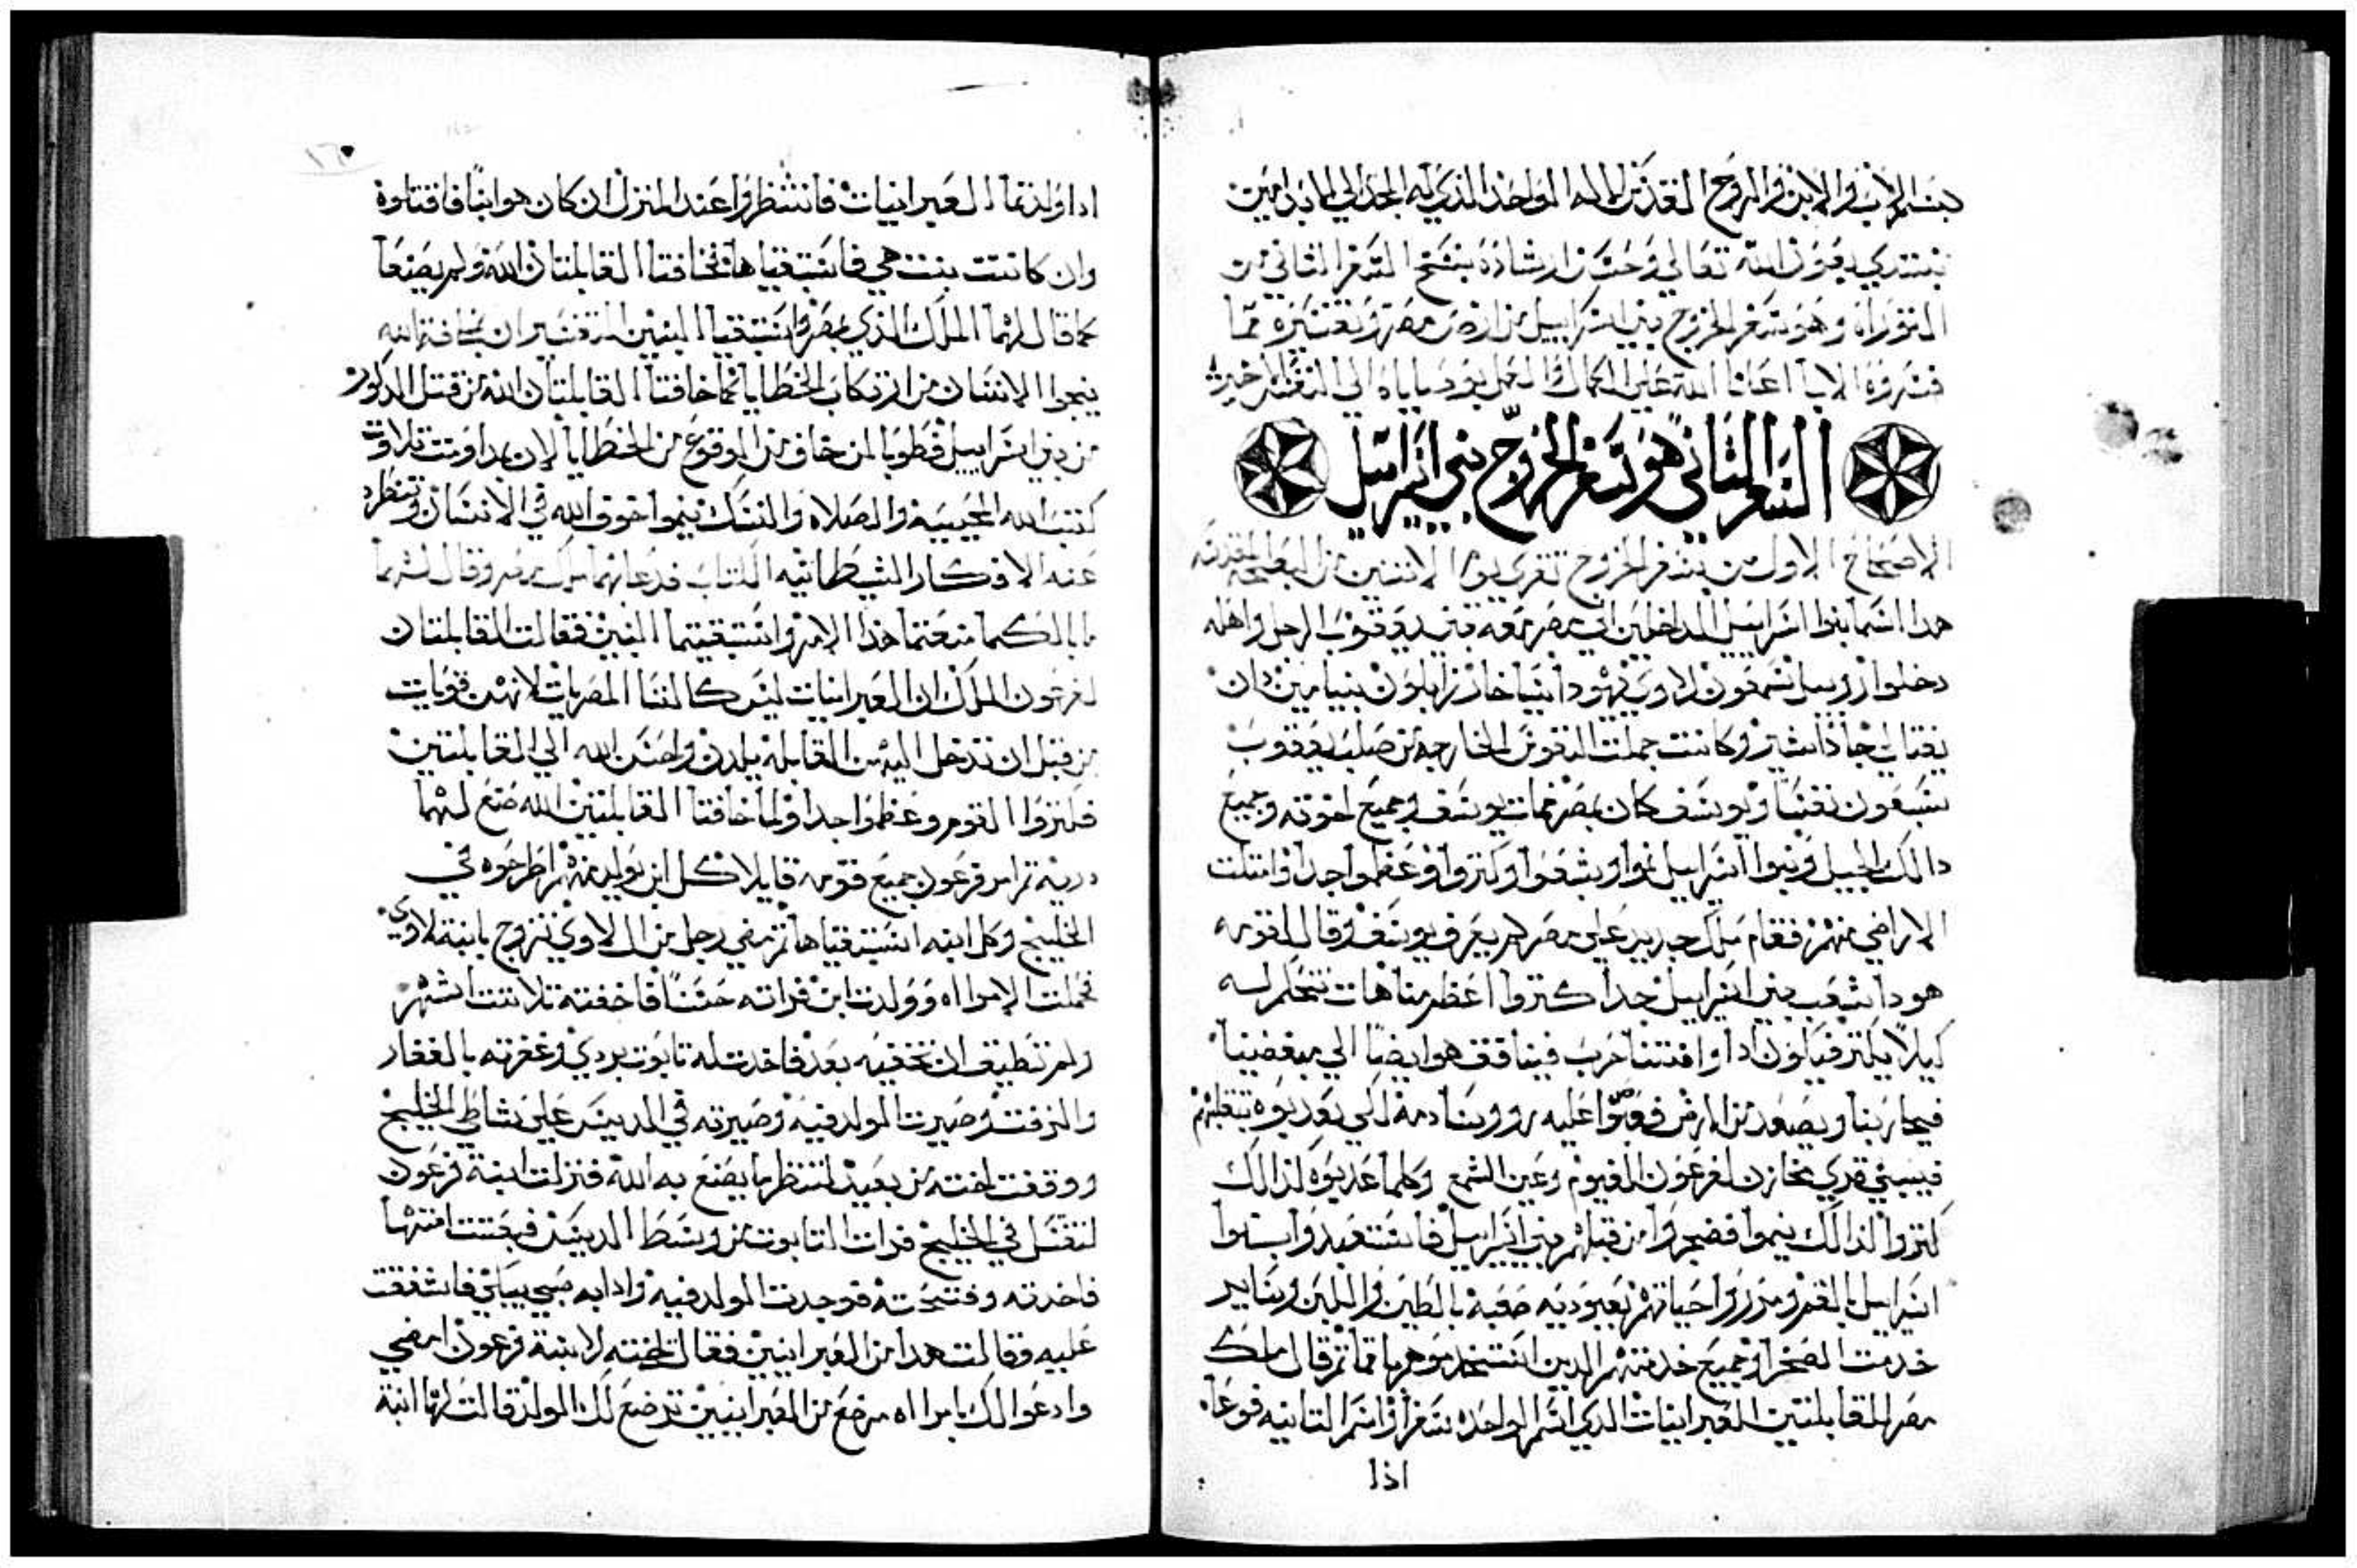 بسم الاب والابن والروح القدس الاله الواحد الذي له المجد الي الابد امين
نبتدي بعون الله تعالي وحسن ارشاده بنسخ السفر الثاني من
التوراه وهو سفر الخروج بني اسراييل من ارض مصر وتفسيره مما
فسروه الابا اعاننا الله علي الكمال العمل بوصاياه الي النفس الاخير
السفر الثاني هو سفر الخروج بني اسراييل
الاصحاح الاول من سفر الخروج تقري يوم الاتنين من البصخه المقدسه
هدا اسما بنوا اسراييل الداخلين الي مصر معه بني يعقوب الرجل واهله
دخلوا روبيل شمعون لاوي يهودا ايساخار زابلون بنيامين دان
نفتالي جاد اشير وكانت جملت النفوس الخارجه من صلب يعقوب
سبعون نفسا ويوسف كان بمصر فمات يوسف وجميع اخوته وجميع
دالك الجيل وبنوا اسراييل نموا وشعوا وكتروا وعظموا جدا وامتلت
الاراضي منهم فقام ملك جديد علي مصر لم يعرف يوسف وقال لقومه
هودا شعب بني اسراييل جدا كتروا اعظم منا هات نتحكم له
كيلا يكتر فيكون ادا وافتنا حرب فيناقف هو ايضا الي مبغضينا
فيحاربنا ويصعد من الارض فعموا عليه روسا دمه لكي يعدبوه بتقلهم
فيبني قري مخازن لفرعون الفيوم وعين الشمع وكلما عدبوه لدالك
كتروا لدالك ينموا فضجروا من قبلهم بني اسراييل فاستعبدوا بنوا
اسراييل بالغم ومرروا حياتهم بعبوديه صعبه بالطين واللبن وساير
خدمت الصخرا وجميع خدمتهم الدين استخدموهم بها تم قال ملك
مصر للقابلتين العبرانيات الدي اسم الواحده سفرا واسم التانيه فوعا
اذا
ادا ولدتما العبرانيات فانتظروا عند المنزل ان كان هو ابنا فاقتلوه
وان كانت بنت هي فاستبقياها فخافتا القابلتان الله ولم يصنعا
كما قال لهما الملك الذي بمصر واستبقيا البنين التفسير ان بمخافة الله
ينجوا الانسان من ارتكاب الخطايا كما خافتا القابلتان الله من قتل الدكور
من بني اسراييل فطوبا لمن خاف من الوقوع من الخطايا لان بمداومت تلاوت
كتب الله المحييه والصلاه والنسك ينموا خوف الله في الانسان وتنطرد
عنه الافكار الشيطانيه الكتاب فدعاهما ملك مصر وقال لهما
ما بالكما صنعتما هذا الامر واستبقيتما البنين فقالت القابلتان
لفرعون الملك ان العبرانيات ليس كالنسا المصريات لانهن قويات
من قبل ان تدخل اليهن القابله يلدن واحسن الله الي القابلتين
فكتروا القوم وعظموا جدا ولما خافتا القابلتين الله صنع لهما
دريه تم امر فرعون جميع قومه قايلا كل ابن يولد منهم اطرحوه في
الخليج وكل ابنه استبقياها تم مضي رجل من ال لاوي تزوج بابنة لاوي
فحملت الامراه وولدت ابن فراته حسنا فاخفته تلاتت اشهر
ولم تطيق ان تخفيه بعد فاخدت له تابوت بردي وغفرته بالغفار
والزفت وصيرت الولد فيه وصيرته في الديس علي شاطي الخليج
ووقفت اخته من بعيد لتنظر ما يصنع به الله فنزلت ابنة فرعون
لتغتسل في الخليج فرات التابوت من وسط الديس فبعتت امتها
فاخدته وفتحته فوجدت الولد فيه وادا به صبي يبكي فاشفقت
عليه وقالت هدا من العبرانيين فقالت اخته لابنة فرعون امضي
وادعوا لك بامراه مرضع من العبرانيين ترضع لك الولد قالت لها ابنة